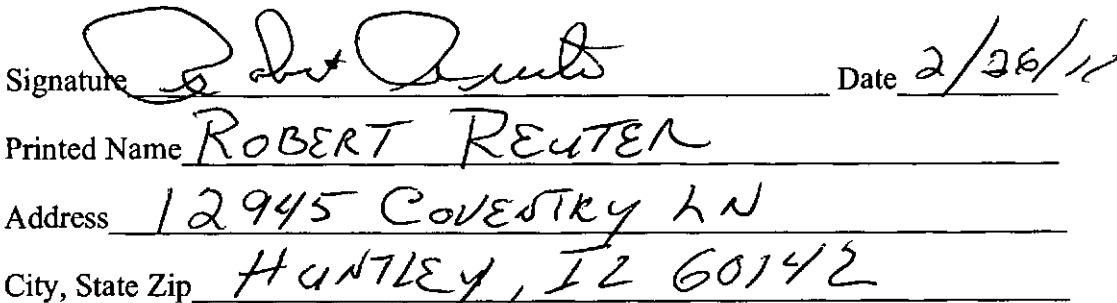 Signature Robert Reuter Date 2/26/11
Printed Name ROBERT REUTER
Address 12945 COVENTRY LN
City, State Zip HUNTLEY, IL 60142